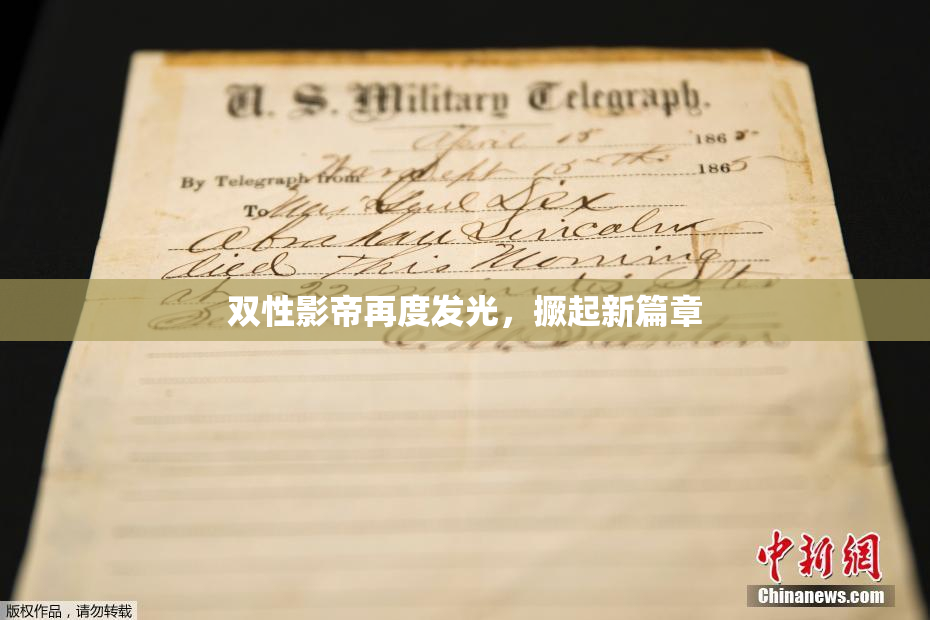 U. S. Military Telegraph.
April 15 1865
By Telegraph from War Dept 15th 1865
To Maj Genl Dix
Abraham Lincoln
died This Morning
at 22 minutes after
双性影帝再度发光，撅起新篇章
E. M. Stanton
中新网
Chinanews.com
版权作品，请勿转载